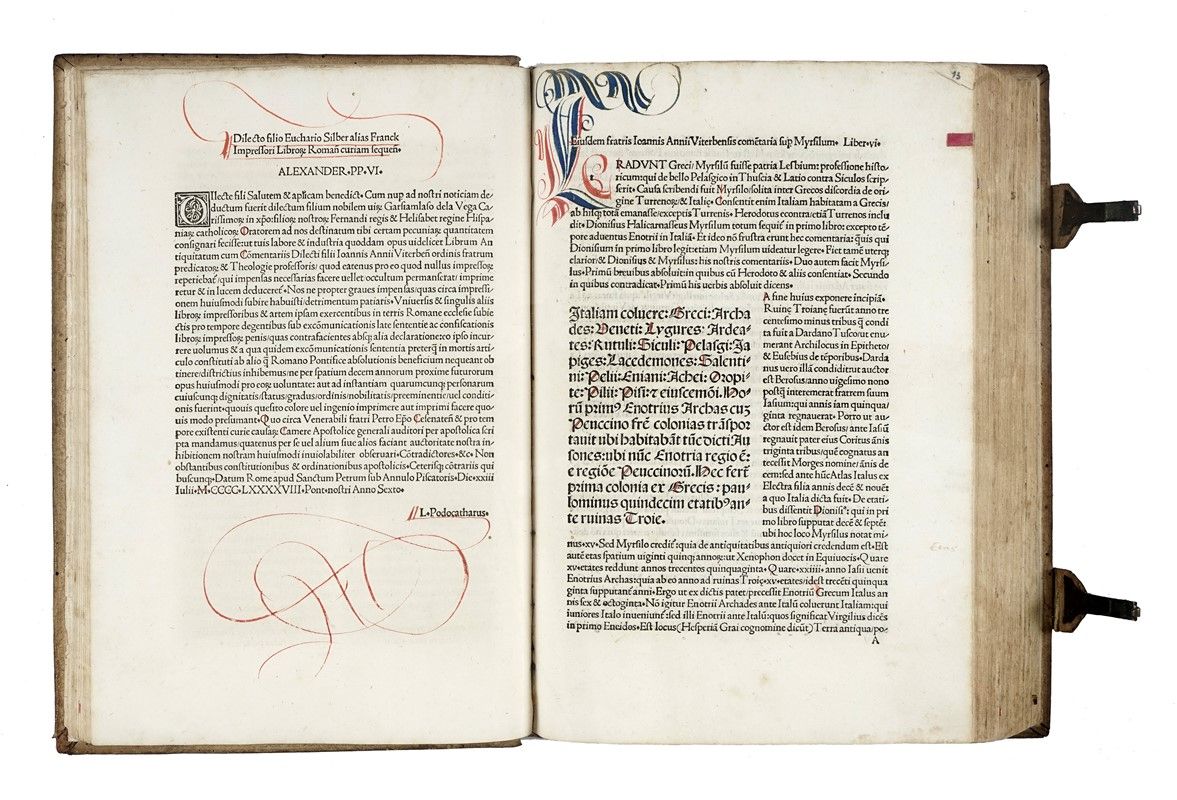 Dilecto filio Euchario Silber alias Franck
Impressori Libroꝝ Romanā curiam sequen̄.
ALEXANDER.PP.VI.
DIlecte fili Salutem & apl̄icam benedict. Cum nup ad nostri noticiam de-
ductum fuerit dilectum filium nobilem uiꝝ Garsiamlaso dela Vega Ca-
rissimoꝝ in xpo filioꝝ nostroꝝ Fernandi regis & Helisabet regine Hispa-
niaꝝ catholicoꝝ Oratorem ad nos destinatum tibi certam pecuniaꝝ quantitatem
consignari fecisse: ut tuis labore & industria quoddam opus uidelicet Librum An
tiquitatum cum Cōmentariis Dilecti filii Ioannis Annii Viterbeñ ordinis fratrum
predicatoꝝ & Theologie professoris/ quod eatenus pro eo quod nullus impressoꝝ
reperiebat̄/qui impensas necessarias facere uellet/occultum permanserat/ imprime
retur & in lucem deduceret̄. Nos ne propter graues impensas/quas circa impressi-
onem huiusmodi subire habuisti/detrimentum patiaris. Vniuersis & singulis aliis
libroꝝ impressoribus & artem ipsam exercentibus in terris Romane ecclesie subie
ctis pro tempore degentibus sub excōmunicationis late sententie ac confiscationis
libroꝝ impressoꝝ penis/quas contrafacientes absq alia declaratione: eo ipso incur-
rere uolumus & a qua quidem excōmunicationis sententia preterq̄ in mortis arti-
culo constituti ab alio q̄ Romano Pontifice absolutionis beneficium nequeant ob
tinere/districtius inhibemus/ne per spatium decem annorum proxime futurorum
opus huiusmodi pro eoꝝ uoluntate: aut ad instantiam quarumcunq̄ personarum
cuiuscunq̄ dignitatis/status/gradus/ordinis/nobilitatis/preeminentie/uel conditi-
onis fuerint/quouis quesito colore uel ingenio imprimere aut imprimi facere quo-
uis modo presumant. Quo circa Venerabili fratri Petro Ep̄o Cesenateñ & pro tem
pore existenti curie causaꝝ Camere Apostolice generali auditori per apostolica scri
pta mandamus/quatenus per se uel alium siue alios faciant auctoritate nostra in-
hibitionem nostram huiusmodi inuiolabiliter obseruari. Cōtradictores. &c. Non
obstantibus constitutionibus & ordinationibus apostolicis. Ceterisq̄ cōtrariis qui
buscunq̄. Datum Rome apud Sanctum Petrum sub Annulo Piscatoris. Die.xxiii
Iulii.M.CCCC.LXXXXVIII. Pont. nostri Anno Sexto.
L.Podocatharus.
13
Eiusdem fratris Ioannis Annii Viterbensis comētaria sup Myrsilum. Liber.vi.
TRADVNT Greci/Myrsilū fuisse patria Lesbium: professione histo-
ricum: qui de bello Pelasgico in Thuscia & Latio contra Siculos scrip-
serit. Causa scribendi fuit Myrsilo/solita inter Grecos discordia de ori-
gine Turrenoꝝ/& Italię. Consentit enim Italiam habitatam a Grecis/
ab hisq̄ tota emanasse/exceptis Turrenis. Herodotus econtra/etiā Turrenos inclu
dit. Dionisius Halicarnaseus Myrsilum totum sequit̄ in primo libro: excepto tē-
pore aduentus Enotrii in Italiā. Et ideo nō frustra erunt hec comentaria: q̄uis qui
Dionisium in primo libro legit: etiam Myrsilum uideatur legere. Fiet tamē uterq̄
clarior/& Dionisius & Myrsilus: his nostris comentariis. Duo autem facit Myrsi-
lus. Primū breuibus absoluit: in quibus cū Herodoto & aliis consentiat. Secundo
in quibus contradicat. Primū his uerbis absoluit dicens.
Italiam coluere: Greci: Archa
des: Veneti: Lygures: Ardea-
tes: Rutuli: Siculi: Pelasgi: Ia
piges: Lacedemones: Salenti-
ni: Pelii: Eniani: Achei: Oropi-
te: Pilii: Pisi: ⁊ eiuscemōi. Ho-
rū primꝰ Enotrius Archas cuꝫ
Peuccino frē colonias trāspor
tauit ubi habitabāt tūc dicti Au
sones: ubi nūc Enotria regio ē:
e regiōe Peuccinorū. Hec ferē
prima colonia ex Grecis: pau-
lominus quindecim etatibꝰ an-
te ruinas Troie.
A fine huius exponere incipiā.
Ruinę Troianę fuerūt anno tre
centesimo minus tribus q̄ condi
ta fuit a Dardano Tusco/ut enu-
merant Archilocus in Epitheto/
& Eusebius de tēporibus. Darda
nus uero illā condidit/ut auctor
est Berosus/anno uigesimo nono
postq̄ interemerat fratrem suum
Iasium: qui annis iam quinqua/
ginta regnauerat. Porro ut au-
ctor est idem Berosus/ ante Iasiū
regnauit pater eius Coritus ānis
triginta tribus/quē cognatus an
tecessit Morges nomine/ānis de
cem: sed ante hūc Atlas Italus ex
Electra filia annis decē & nouē:
a quo Italia dicta fuit. De etati-
bus dissentit Dionisiꝰ: qui in pri
mo libro supputat decē & septē:
ubi hoc loco Myrsilus notat mi-
nus.xv. Sed Myrsilo credit̄: quia de antiquitatibus antiquiori credendum est. Est
autē etas spatium uiginti quinq̄ annoꝝ: ut Xenophon docet in Equiuocis. Quare
xv. etates reddunt annos trecentos quinquaginta. Quare.xxiiii. anno Iasii uenit
Enotrius Archas: quia ab eo anno ad ruinas Troię.xv. etates/idest trecēti quinqua
ginta supputant̄ anni. Ergo ut ex dictis patet/precessit Enotriū Grecum Italus an
nis sex & octoginta. Nō igitur Enotrii Archades ante Italū coluerunt Italiam: qui
iuniores Italo inueniunt̄: sed illi Enotrii ante Italū: quos significat Virgilius dicēs
in primo Eneidos. Est locus(Hesperiā Grai cognomine dicūt) Terra antiqua/po-
A